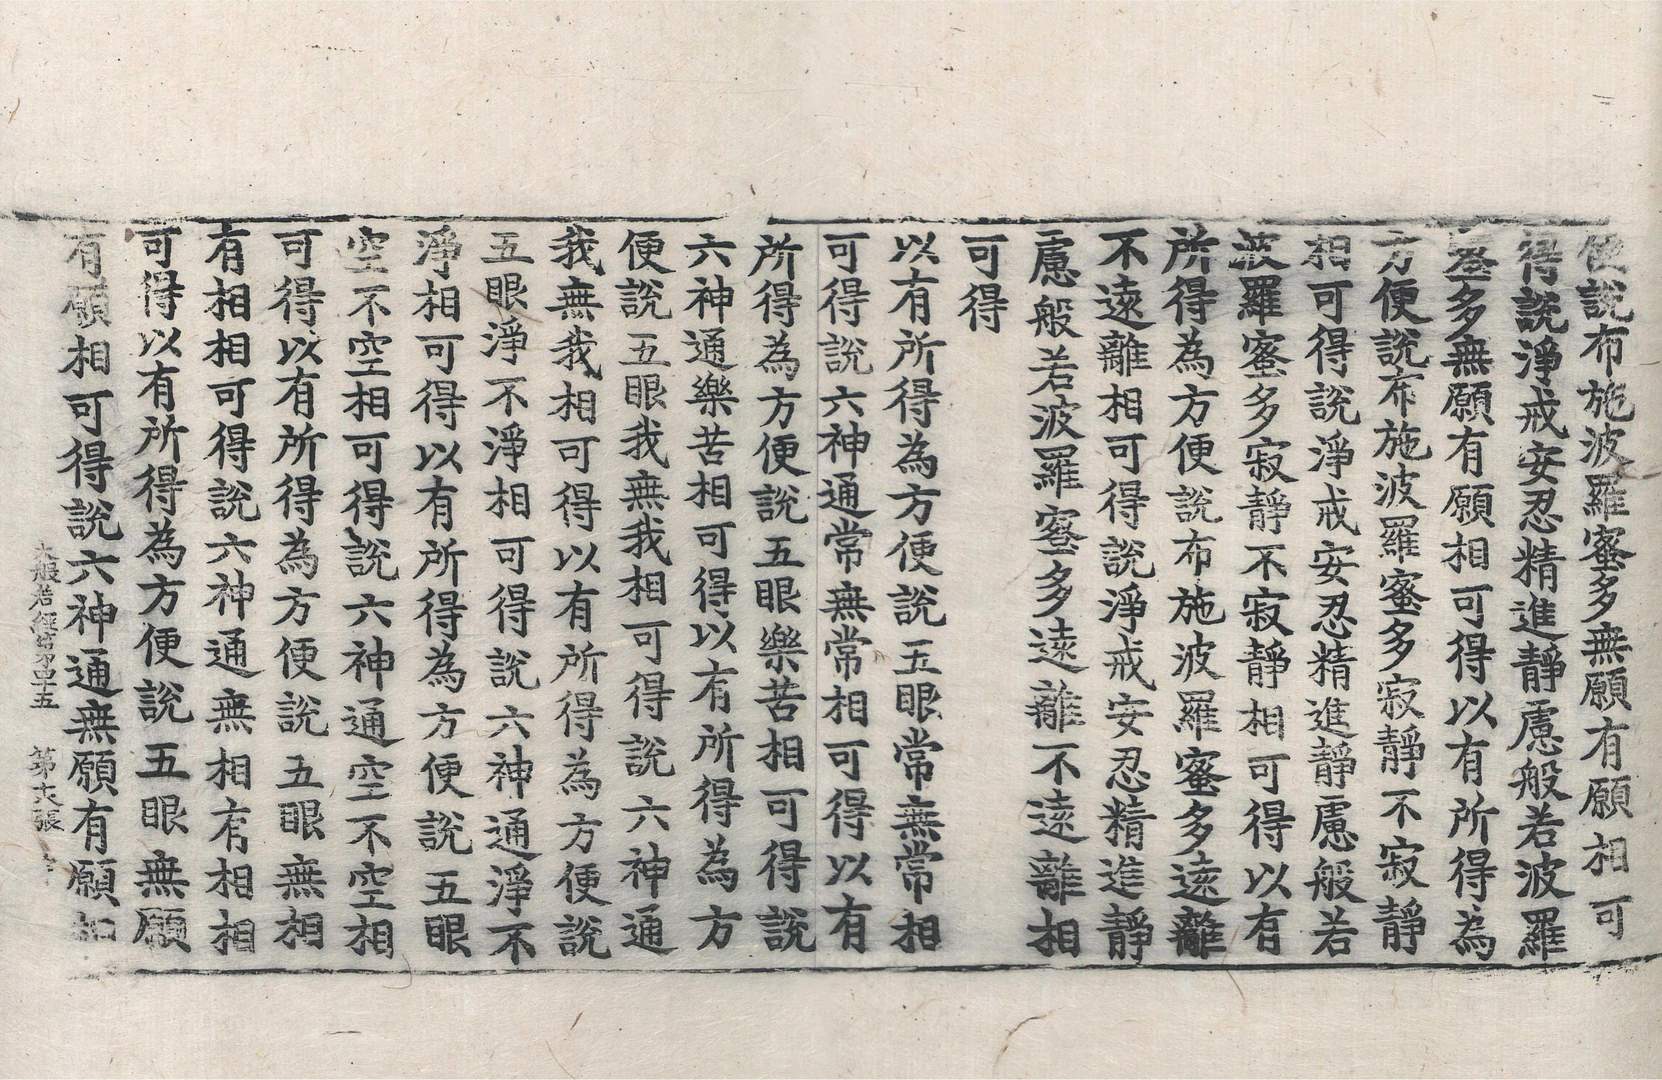 便說布施波羅蜜多無願有願相可
得說淨戒安忍精進靜慮般若波羅
蜜多無願有願相可得以有所得為
方便說布施波羅蜜多寂靜不寂靜
相可得說淨戒安忍精進靜慮般若
波羅蜜多寂靜不寂靜相可得以有
所得為方便說布施波羅蜜多遠離
不遠離相可得說淨戒安忍精進靜
慮般若波羅蜜多遠離不遠離相
可得
以有所得為方便說五眼常無常相
可得說六神通常無常相可得以有
所得為方便說五眼樂苦相可得說
六神通樂苦相可得以有所得為方
便說五眼我無我相可得說六神通
我無我相可得以有所得為方便說
五眼淨不淨相可得說六神通淨不
淨相可得以有所得為方便說五眼
空不空相可得說六神通空不空相
可得以有所得為方便說五眼無相
有相相可得說六神通無相有相相
可得以有所得為方便說五眼無願
有願相可得說六神通無願有願相
大般若經第四十五 第十六張